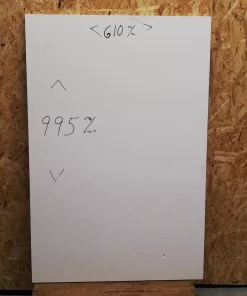 < 610 % >
^
995 %
v